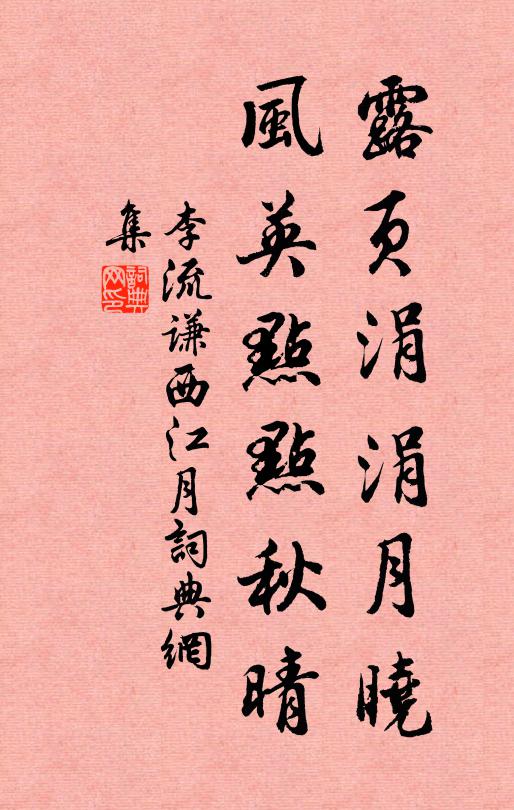 露页涓涓月曉
風英點點秋晴
李流谦西江月詞典網
集
詞典網印